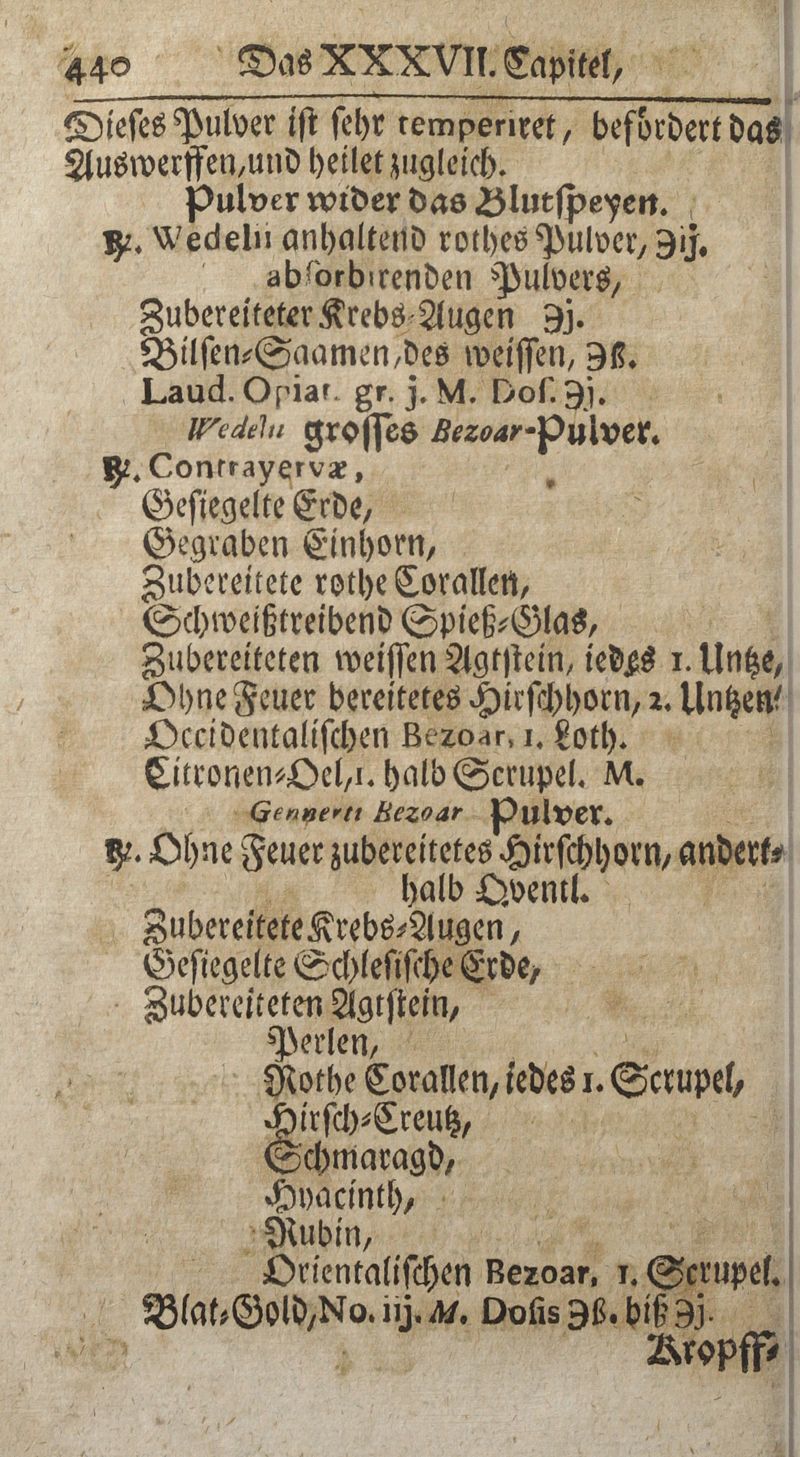 440 Das XXXVII. Capitel,
Dieses Pulver ist sehr temperiret, befördert das
Auswerffen, und heilet zugleich.
Pulver wider das Blutspeyen.
℞. Wedelii anhaltend rothes Pulver, ℈ij.
absorbirenden Pulvers,
Zubereiteter Krebs-Augen ℈j.
Bilsen-Saamen, des weissen, ℈ß.
Laud. Opiat. gr. j. M. Dos. ℈j.
Wedelii grosses Bezoar-Pulver.
℞. Contrayervæ,
Gesiegelte Erde,
Gegraben Einhorn,
Zubereitete rothe Corallen,
Schweißtreibend Spieß-Glas,
Zubereiteten weissen Agtstein, iedes 1. Untze,
Ohne Feuer bereitetes Hirschhorn, 2. Untzen
Occidentalischen Bezoar, 1. Loth.
Citronen-Oel, 1. halb Scrupel. M.
Gennerti Bezoar Pulver.
℞. Ohne Feuer zubereitetes Hirschhorn, andert-
halb Qventl.
Zubereitete Krebs-Augen,
Gesiegelte Schlesische Erde,
Zubereiteten Agtstein,
Perlen,
Rothe Corallen, iedes 1. Scrupel,
Hirsch-Creutz,
Schmaragd,
Hyacinth,
Rubin,
Orientalischen Bezoar, 1. Scrupel.
Blat-Gold, No. iij. M. Dosis ℈ß. biß ℈j.
Kropff-